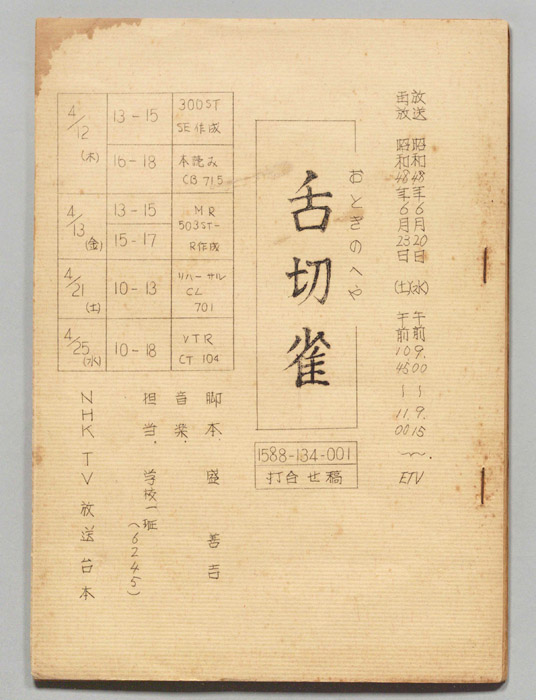 放送 昭和48年6月20日(水) 午前9.00〜9.15
再放 昭和48年6月23日(土) 午前10.45〜11.00 ETV
おとぎのへや
舌切雀
1588-134-001
打合せ稿
4/12(木) 13-15 300ST SE作成
16-18 本読み CB 715
4/13(金) 13-15 MR 503ST-
15-17 R作成
4/21(土) 10-13 リハーサル CL 701
4/25(水) 10-18 VTR CT 104
脚本、盛 善吉
音楽、
担当、学校一班
(6245)
NHK TV 放送台本